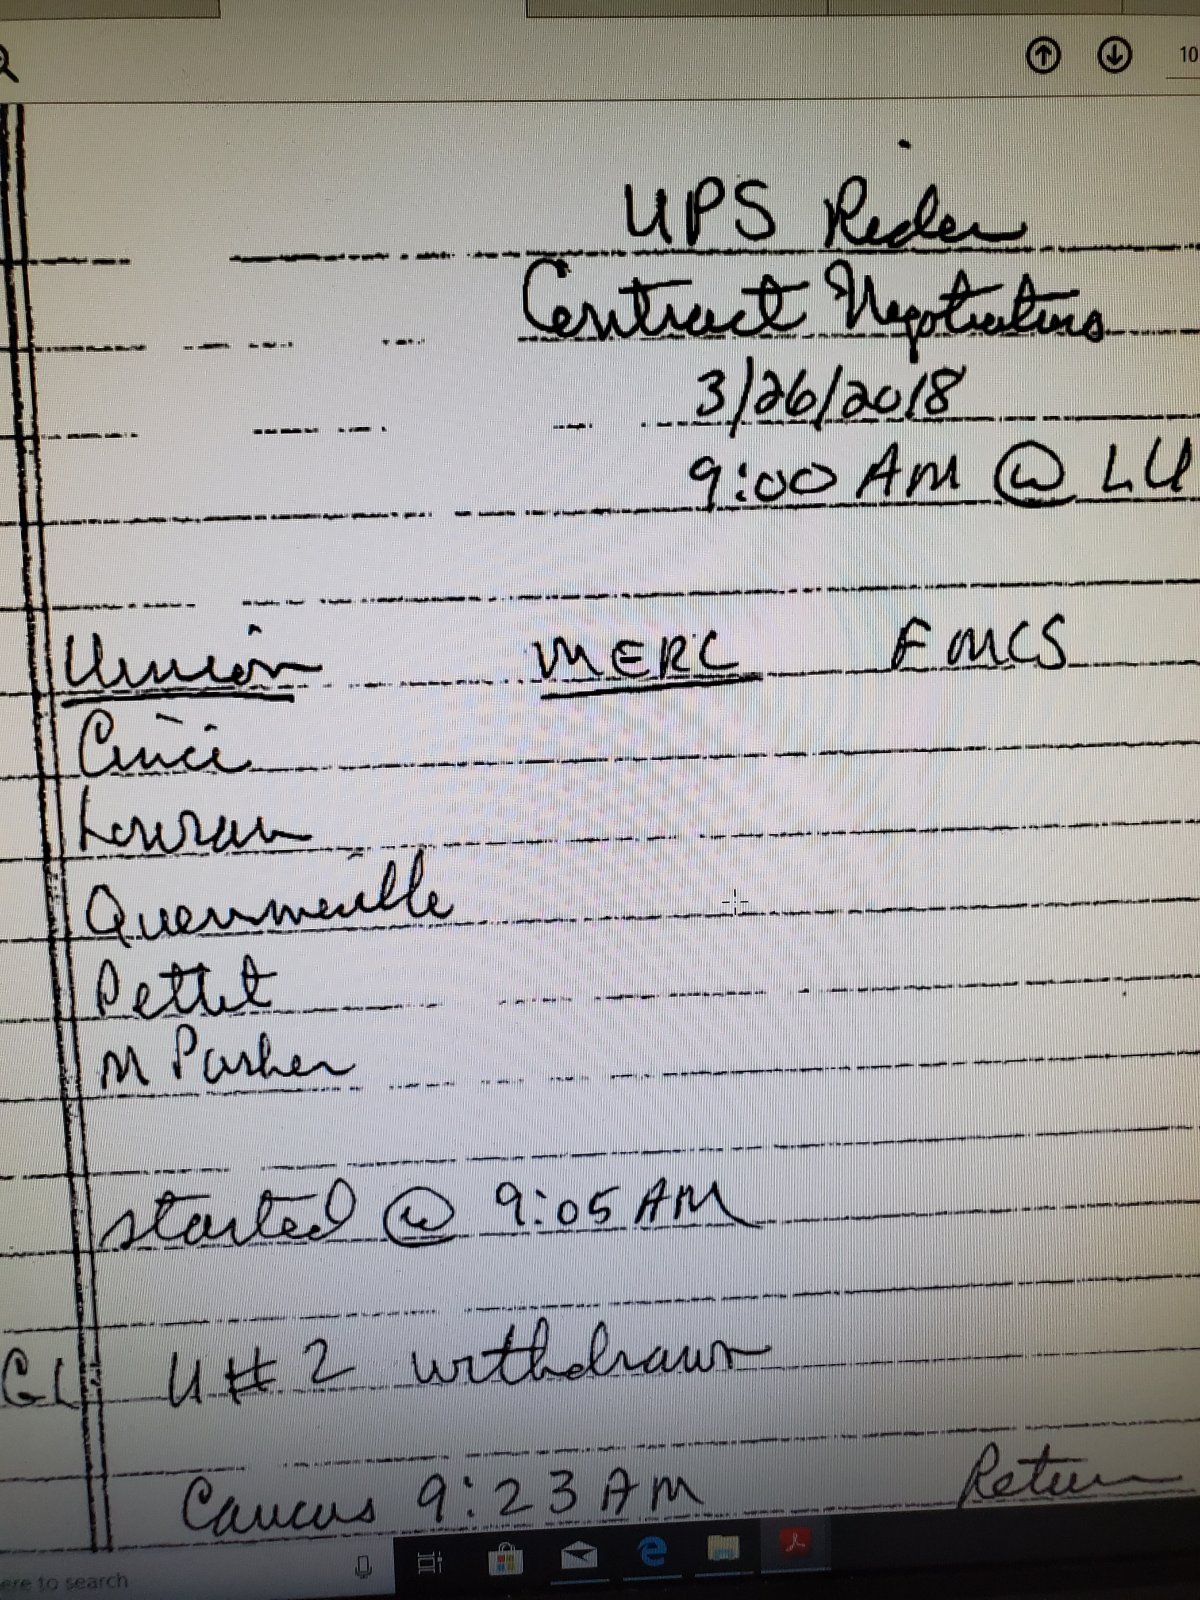 10
UPS Rider
Contract Negotiations
3/26/2018
9:00 AM @ LU
Union MERC FMCS
Cinci
Lowran
Quenneville
Pettet
M Parker
started @ 9:05 AM
GL U#2 withdrawn
Caucus 9:23 AM Return
ere to search